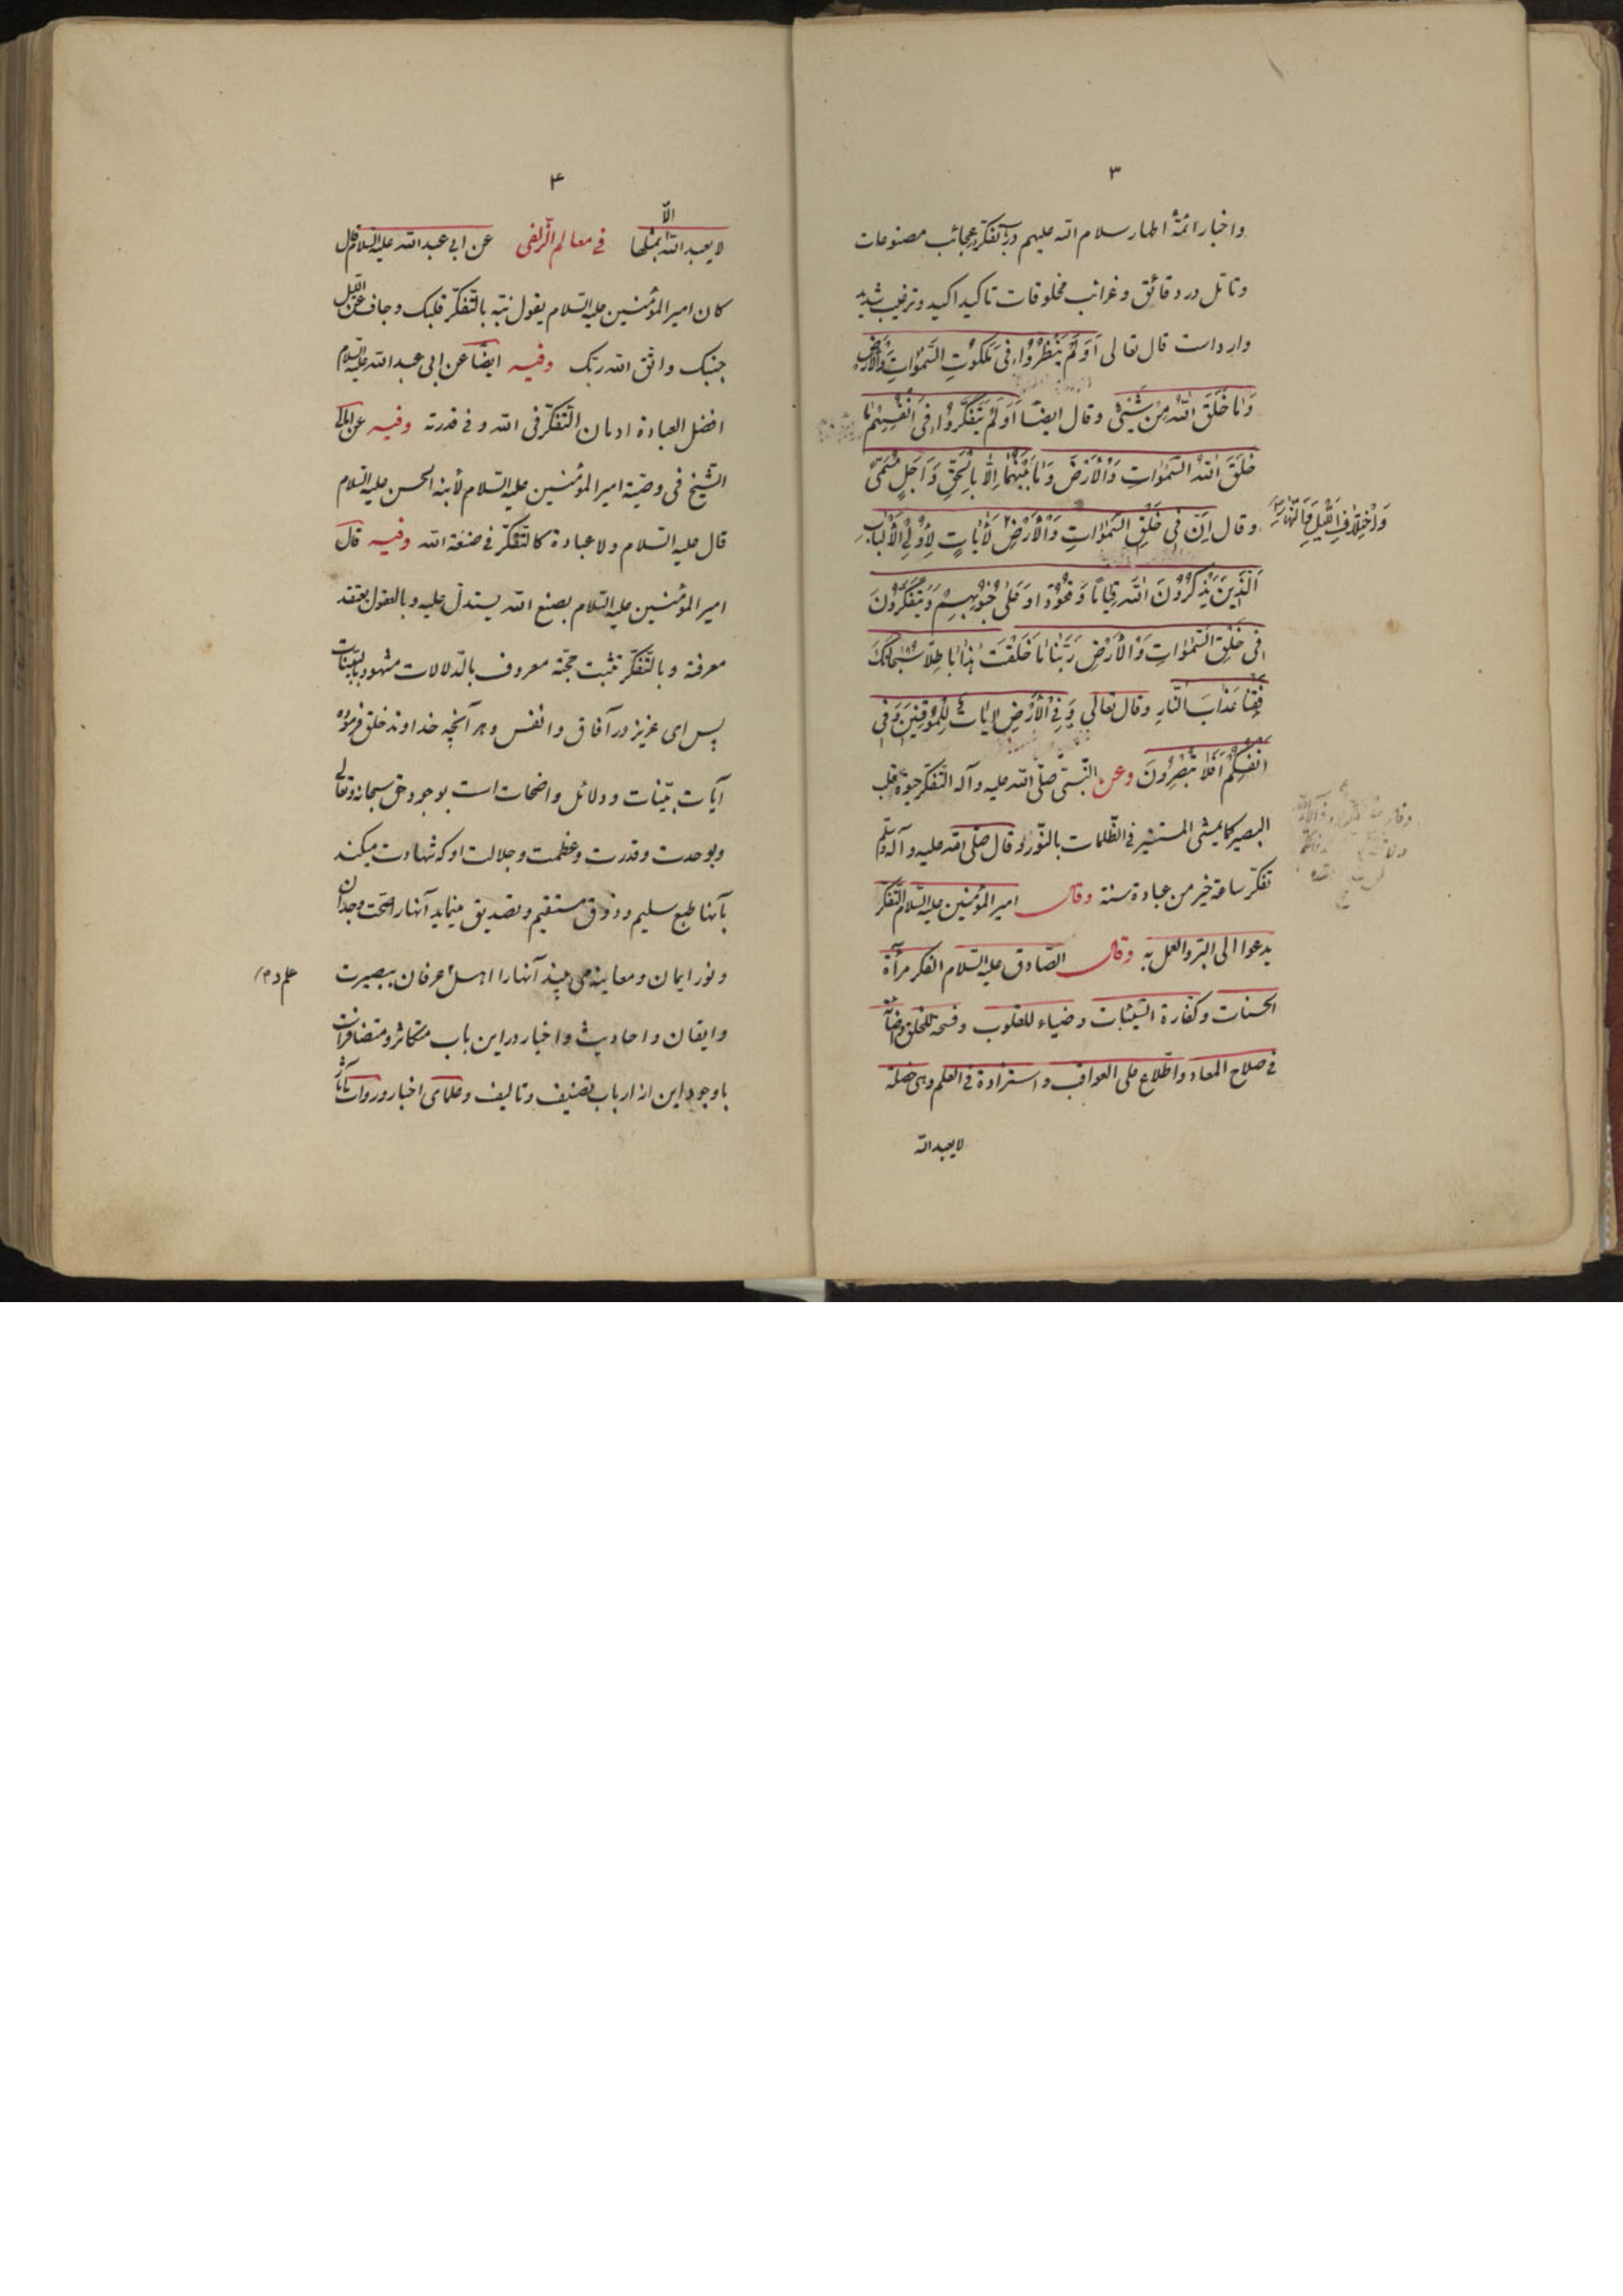 ۳
واخبار ائمّهٔ اطهار سلام الله علیهم در تفکر عجائب مصنوعات
وتأمّل در دقائق وغرائب مخلوقات تاکید اکید و ترغیب شدید
وارد است قال تعالی اَوَلَمْ یَنْظُرُوا فی مَلَکُوتِ السَّمٰوٰاتِ وَالْأَرْضِ
وَمٰا خَلَقَ اللهُ مِنْ شَیْئٍ وقال ایضاً اَوَلَمْ یَتَفَکَّرُوا فی اَنْفُسِهِمْ مٰا
خَلَقَ اللهُ السَّمٰوٰاتِ وَالْأَرْضَ وَمٰا بَیْنَهُمٰا اِلّٰا بِالْحَقِّ وَاَجَلٍ مُسَمّیً
وقال اِنَّ فی خَلْقِ السَّمٰوٰاتِ وَالْأَرْضِ لَأٰیٰاتٍ لِأُولِی الْأَلْبٰابِ
وَاخْتِلٰافِ اللَّیْلِ وَالنَّهٰارِ
اَلَّذینَ یَذْکُرُونَ اللهَ قِیٰاماً وَقُعُوداً وَعَلیٰ جُنُوبِهِمْ وَیَتَفَکَّرُونَ
فی خَلْقِ السَّمٰوٰاتِ وَالْأَرْضِ رَبَّنٰا مٰا خَلَقْتَ هٰذٰا بٰاطِلاً سُبْحٰانَکَ
فَقِنٰا عَذٰابَ النّٰارِ وقال تعالی وَفِی الْأَرْضِ اٰیٰاتٌ لِلْمُوقِنینَ وَفی
اَنْفُسِکُمْ اَفَلٰا تُبْصِرُونَ وعن النّبیّ صلّی الله علیه وآله التّفکّر حیوة قلب
البصیر کما یمشی المستنیر فی الظّلمات بالنّور وقال صلّی الله علیه وآله وسلّم
تفکّر ساعة خیر من عبادة سنة وقال امیر المؤمنین علیه السّلام التّفکّر
یدعوا الی البرّ والعمل به وقال الصّادق علیه السّلام الفکر مرآة
الحسنات وکفّارة السّیّئات وضیاء للقلوب وفسحة للخلق واصابة
فی صلاح المعاد واطّلاع علی العواقب واستزادة فی العلم وهی خصلة
لا یعبد الله
۴
لا یعبد الله الّا بمثلها فی معالم الزّلفی عن ابی عبد الله علیه السلام قال
کان امیر المؤمنین علیه السّلام یقول نبّه بالتّفکّر قلبک وجاف عن اللّیل
جنبک واتّق الله ربّک وفیه ایضاً عن ابی عبد الله علیه السّلام
افضل العبادة ادمان التّفکّر فی الله وفی قدرته وفیه عن امالی
الشّیخ فی وصیّة امیر المؤمنین علیه السّلام لأبنه الحسن علیه السّلام
قال علیه السّلام ولا عبادة کالتّفکّر فی صنعة الله وفیه قال
امیر المؤمنین علیه السّلام بصنع الله یستدلّ علیه وبالعقول یعتقد
معرفته وبالتّفکّر تثبت حجّته معروف بالدّلالات مشهود بالبیّنات
پس ای عزیز در آفاق وانفس وهر آنچه خداوند خلق فرموده
آیات بیّنات ودلائل واضحات است بوجود حق سبحانه وتعالی
وبوحدت وقدرت وعظمت وجلالت او که شهادت میکند
بآنها طبع سلیم وذوق مستقیم وتصدیق مینماید آنها را صحّت وجدان
ونور ایمان ومعاینه می بیند آنها را اهل عرفان ببصیرت
وایقان واحادیث واخبار در این باب متکاثر ومتضافر است
با وجود این از ارباب تصنیف وتالیف وعلمای اخبار وروات آثار